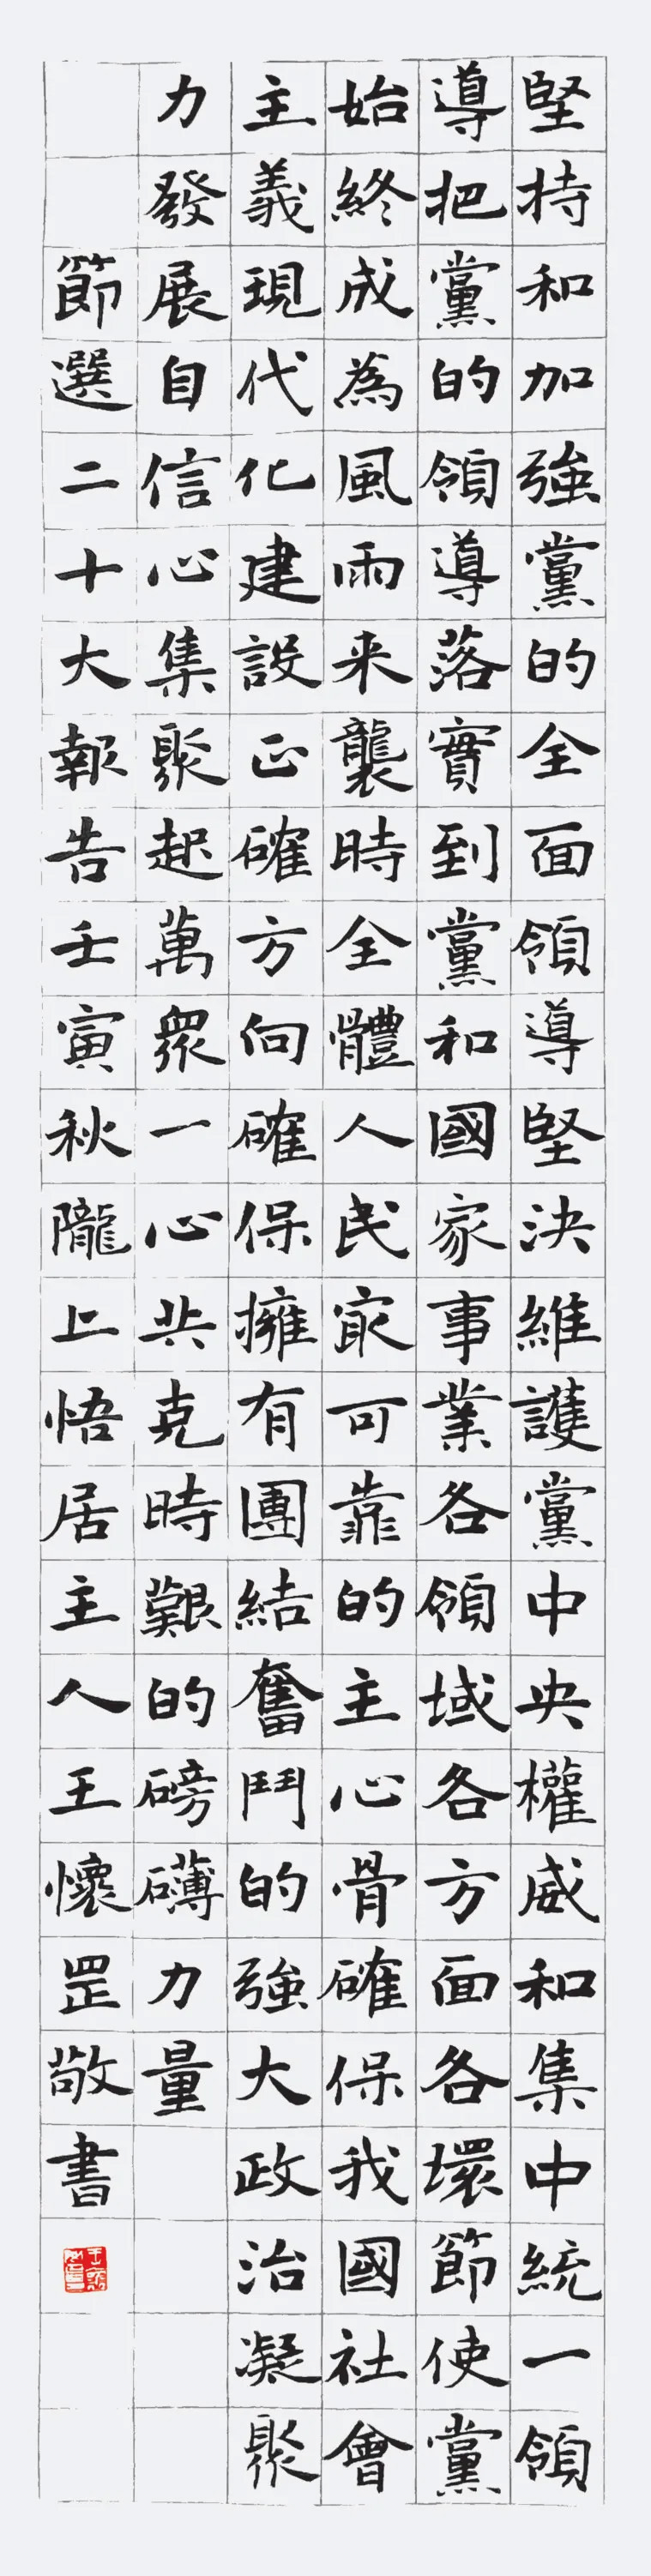 堅持和加強黨的全面領導堅決維護黨中央權威和集中統一領
導把黨的領導落實到黨和國家事業各領域各方面各環節使黨
始終成為風雨来襲時全體人民冣可靠的主心骨確保我國社會
主義現代化建設正確方向確保擁有團結奮鬥的強大政治凝聚
力發展自信心集聚起萬衆一心共克時艱的磅礴力量
節選二十大報告壬寅秋隴上悟居主人王懷罡敬書